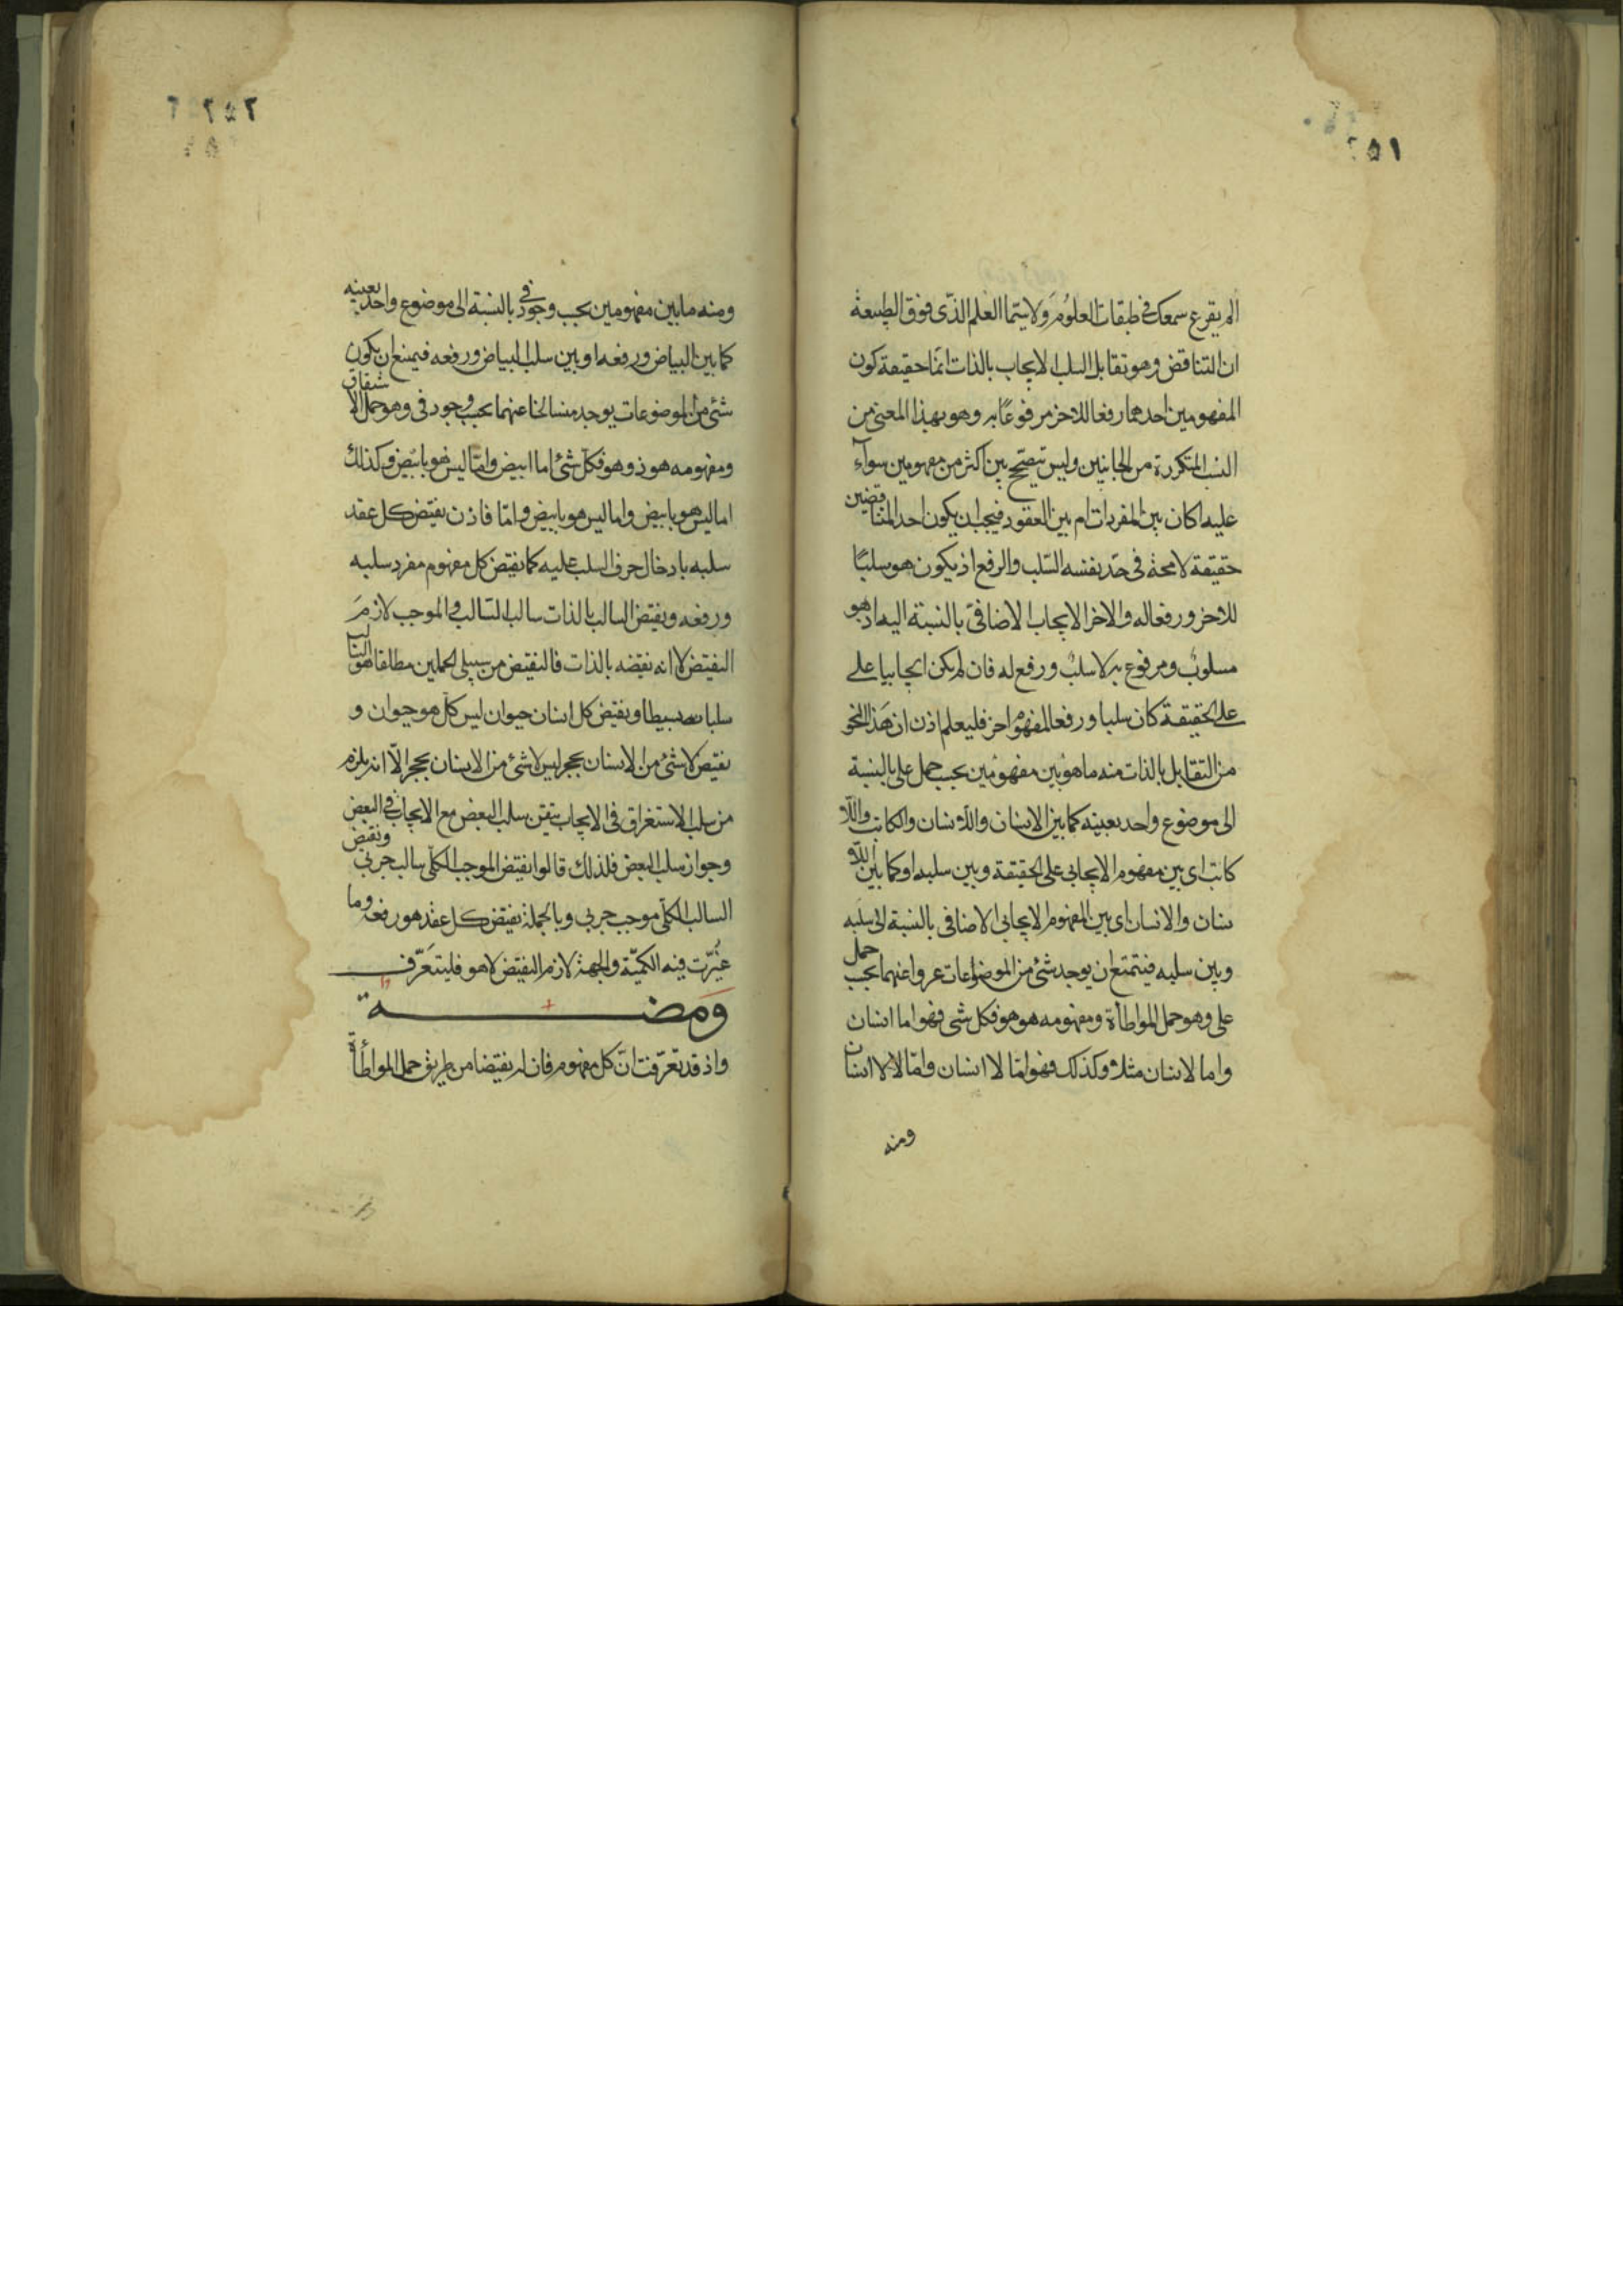 ٢٥١
الم يقرع سمعك فى طبقات العلوم ولا سيما العلم الذى فوق الطبيعة
ان التناقض وهو تقابل السلب الايجاب بالذات انما حقيقة كون
المفهومين احدهما رفعا للاخر مرفوعًا به وهو بهذا المعنى من
النسب المتكررة من الجانبين وليس تيصحّ بين اكثر من مفهومين سوآء
عليه اكان بين المفردات ام بين العقود فيجب ان يكون احد المتناقضين
حقيقة لامحة فى حدّ نفسه السّلب والرفع اذ يكون هو سلبًا
للاخر ورفعا له والاخر الايجاب الاضافىّ بالنسبة اليه اذ هو
مسلوبٌ ومرفوع به لا سلبٌ ورفع له فان لم يكن ايجابيا على
على الحقيقة كان سلبا ورفعا لمفهوم اخر فليعلم اذن ان هذا النحو
من التقابل بالذات منه ما هو بين مفهومين بحسب حمل على بالنسبة
الى موضوع واحد بعينه كما بين الانسان واللاانسان والكاتب واللا
كاتب اى بين مفهوم الايجابى على الحقيقة وبين سلبه او كما بين اللاو
نسان والانسان اى بين المفهوم الايجابى الاضافى بالنسبة الى سلبه
وبين سلبه فيتمتع ان يوجد شئ من الموضوعات عروا عنهما بحسب حمل
على وهو حمل المواطأة ومفهومه هو هو فكل شى فهو اما انسان
واما لانسان مثلا وكذلك فهو امّا لا انسان وامّا لا لا انسان
ومنه
٢٥٢
ومنه ما بين مفهومين بحسب وجود فى بالنسبة الى موضوع واحد بعينه
كما بين البياض ورفعه او بين سلب البياض ورفعه فيمنع ان يكون
شئ من الموضوعات يوجد منسالخا عنهما بحسب وجود فى وهو حمل الاشتقاق
ومفهومه هو ذو هو فكل شئ اما ابيض وامّا ليس هو بابيض وكذلك
اما ليس هو بابيض واما ليس هو بابيض وامّا فاذن نقيض كل عقد
سلبه بادخال حرف السلب عليه كما نقيض كل مفهوم مفرد سلبه
ورفعه ونقيض السالب بالذات سالب السّالب والموجب لازم
النقيض لا انه نقيضه بالذات فالنقيض من سبيلى الحملين مطلقا هو السالب
سلبا بسيطا ونقيض كل انسان حيوان ليس كل هو حيوان و
نقيض لا شئ من الانسان بحجر ليس لا شئ من الانسان بحجر الّا انه يلزم
من سلب الاستغراق فى الايجاب تيقن سلب البعض مع الايجاب فى البعض
وجواز سلب البعض فلذلك قالوا نقيض الموجب الكلّى سالب جزئى ونقيض
السالب الكلّى موجب جزئى وبالجملة نقيض كل عقد هو رفعه وما
عيّرت فيه الكميّة والجهة لازم النقيض لا هو فليتعرّف
ومضة
واذ قد تعرّفت انّ كل مفهوم فان له نقيضا من طريق حمل المواطأة